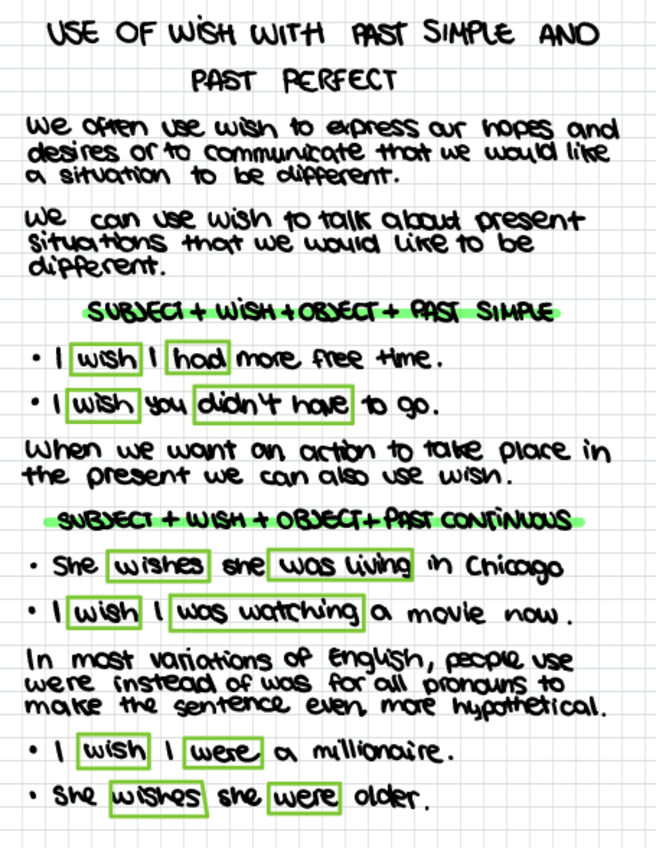 USE OF WISH WITH PAST SIMPLE AND
PAST PERFECT
We often use wish to express our hopes and
desires or to communicate that we would like
a situation to be different.
We can use wish to talk about present
situations that we would like to be
different.
SUBJECT + WISH + OBJECT + PAST SIMPLE
• I wish I had more free time.
• I wish you didn't have to go.
When we want an action to take place in
the present we can also use wish.
SUBJECT + WISH + OBJECT + PAST CONTINUOUS
• She wishes she was living in Chicago
• I wish I was watching a movie now.
In most variations of English, people use
were instead of was for all pronouns to
make the sentence even more hypothetical.
• I wish I were a millionaire.
• She wishes she were older.